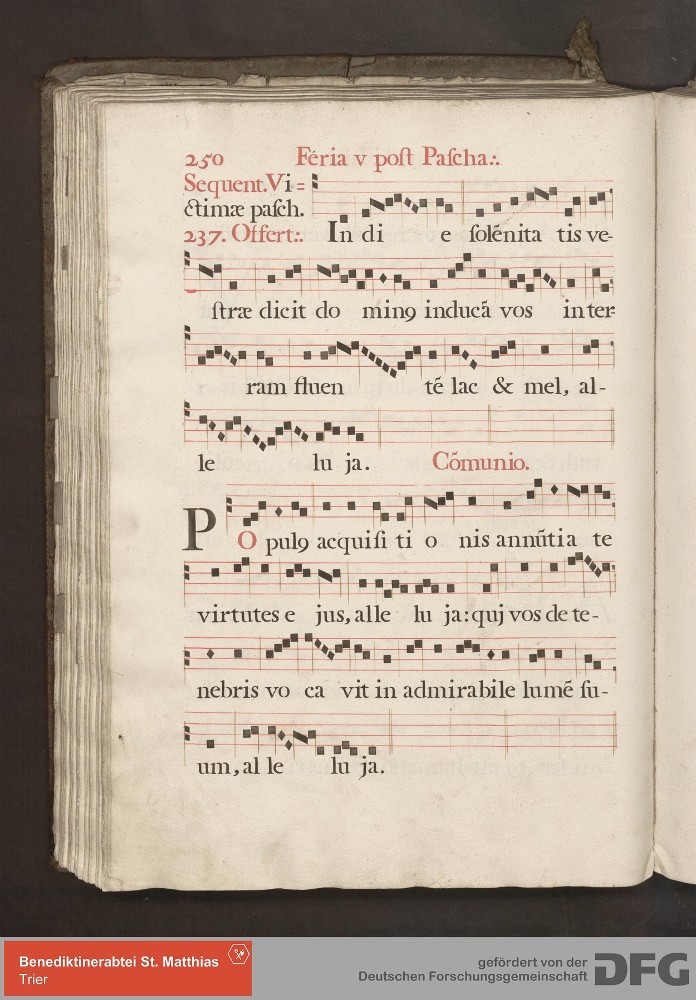 250 Féria v post Pascha:.
Sequent. Vi=
ctimæ pasch.
237. Offert:. In di e solẽnita tis ve-
stræ dicit do minꝯ inducã vos in ter
ram fluen tẽ lac & mel, al-
le lu ja. Cõmunio.
PO pulꝯ acquisi ti o nis annũtia te
virtutes e jus, alle lu ja: quj vos de te-
nebris vo ca vit in admirabile lumẽ su-
um, al le lu ja.
Benediktinerabtei St. Matthias
Trier
gefördert von der
Deutschen Forschungsgemeinschaft DFG